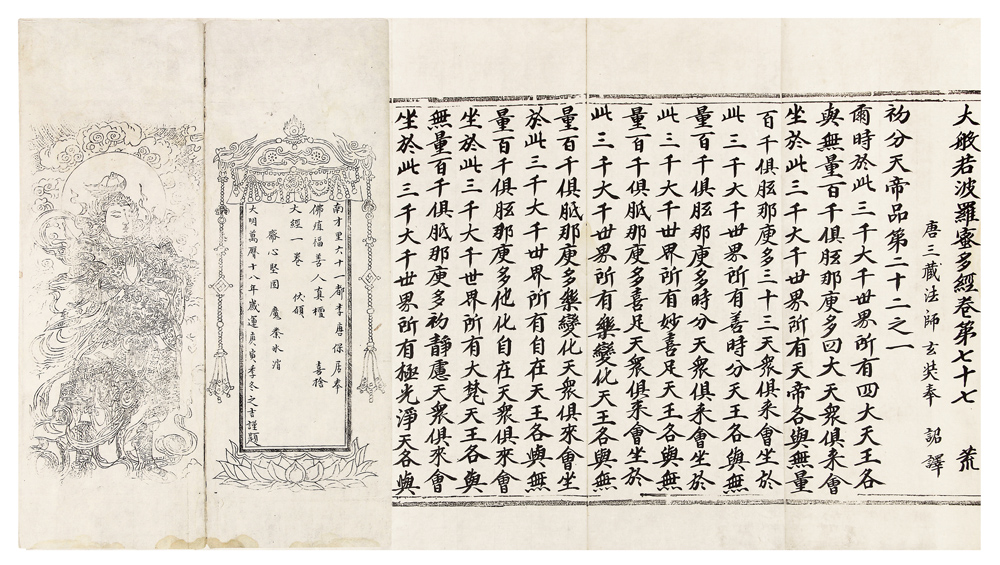 大般若波羅蜜多經卷第七十七 荒
唐三藏法師玄奘奉 詔譯
初分天帝品第二十二之一
爾時於此三千大千世界所有四大天王各
與無量百千俱胝那庾多四大天衆俱來會
坐於此三千大千世界所有天帝各與無量
百千俱胝那庾多三十三天衆俱來會坐於
此三千大千世界所有善時分天王各與無
量百千俱胝那庾多時分天衆俱來會坐於
此三千大千世界所有妙喜足天王各與無
量百千俱胝那庾多喜足天衆俱來會坐於
此三千大千世界所有樂變化天王各與無
量百千俱胝那庾多樂變化天衆俱來會坐
於此三千大千世界所有自在天王各與無
量百千俱胝那庾多他化自在天衆俱來會
坐於此三千大千世界所有大梵天王各與
無量百千俱胝那庾多初靜慮天衆俱來會
坐於此三千大千世界所有極光淨天各與
南才里六十一都李唐保居奉
佛植福善人真 喜捨
大經一卷 伏願
齋心堅固 魔業氷消
大明萬曆十八年歲運庚寅季冬之吉謹題